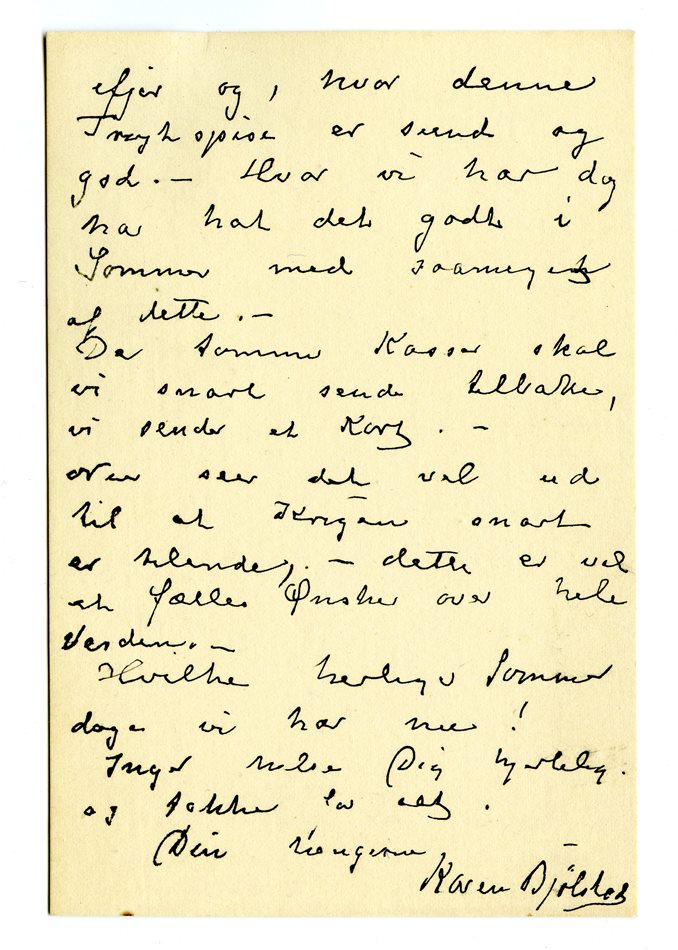 og, hvor denne
er sund og
god. – Hvor vi har dog
ha hat det godt i
Sommer med saameget
af dette. –
De tomme Kasser skal
vi snart sende tilbake,
vi sender et Kort. –
seer det vel ud
til at Krigen snart
er tilende, – dette er vel
et fælles Ønske over hele
Verden. –
Hvilke herlige Sommer
dage vi har nu!
Inger hilse Dig hjertelig
og takke for alt.
Din hengivne
Karen Bjølstad